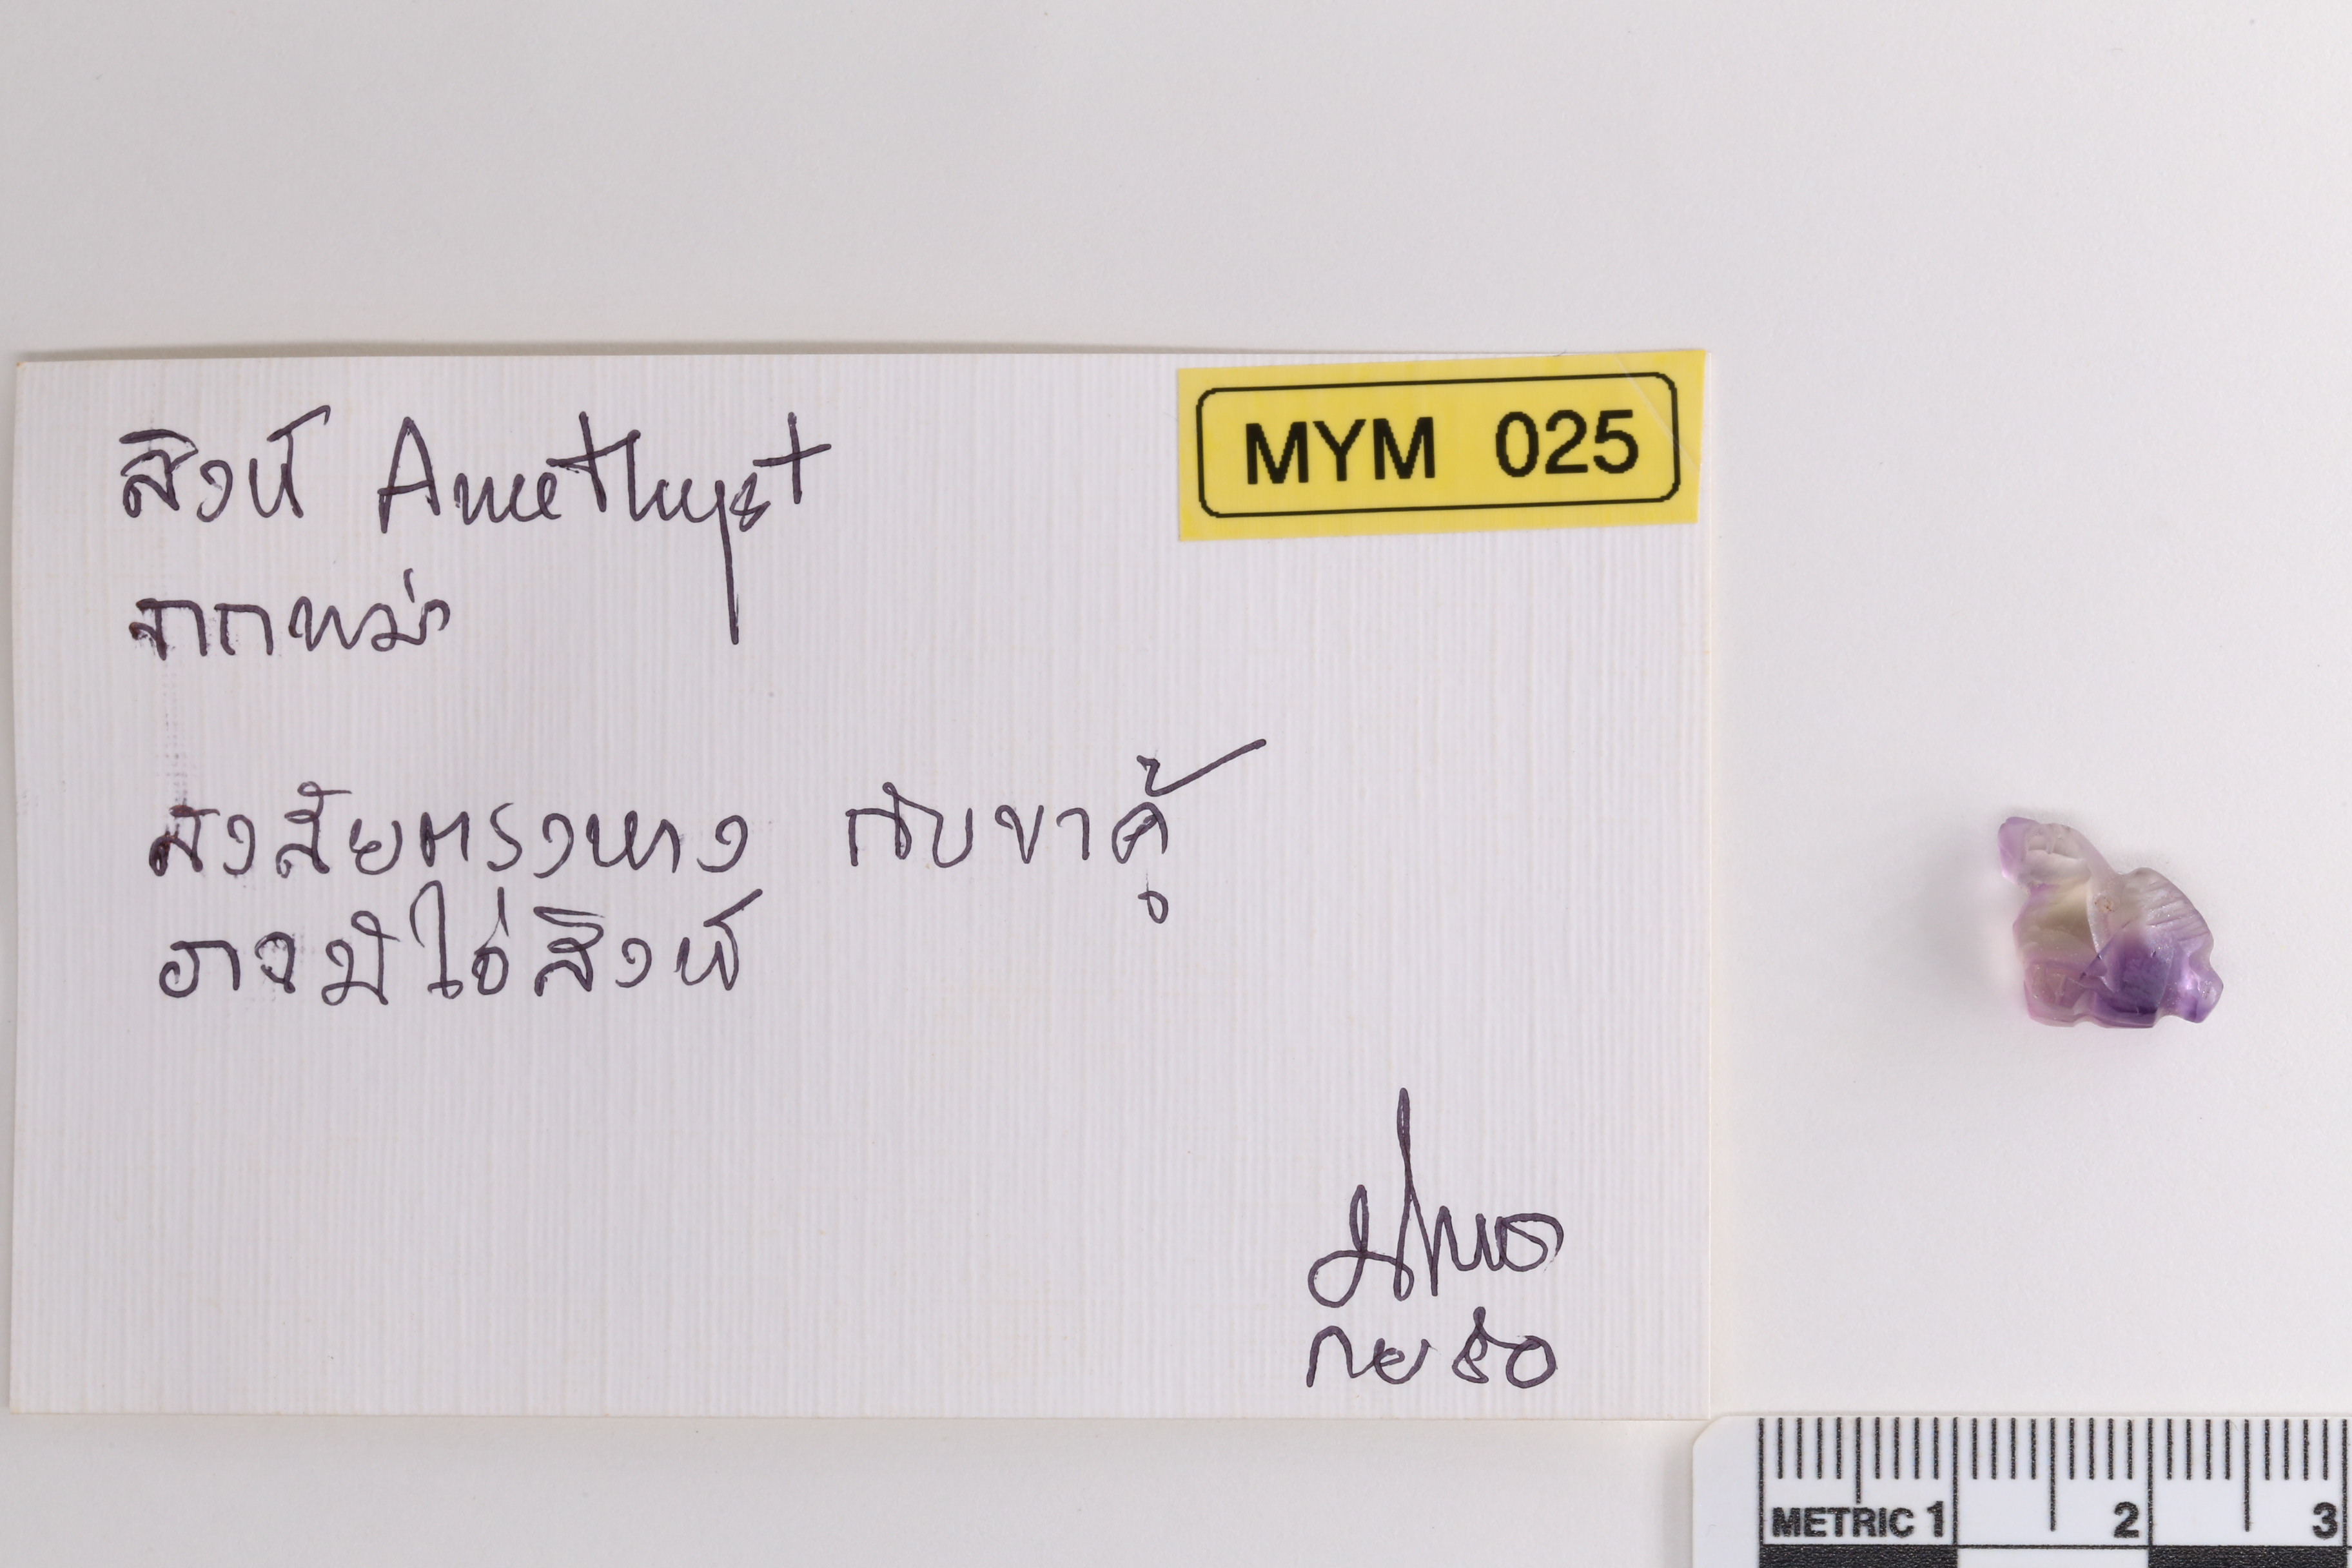 MYM 025
สิงห์ Amethyst
จากพม่า
สงสัยตรงหาง กับขาคู้
อาจมิใช่สิงห์
METRIC 1 2 3